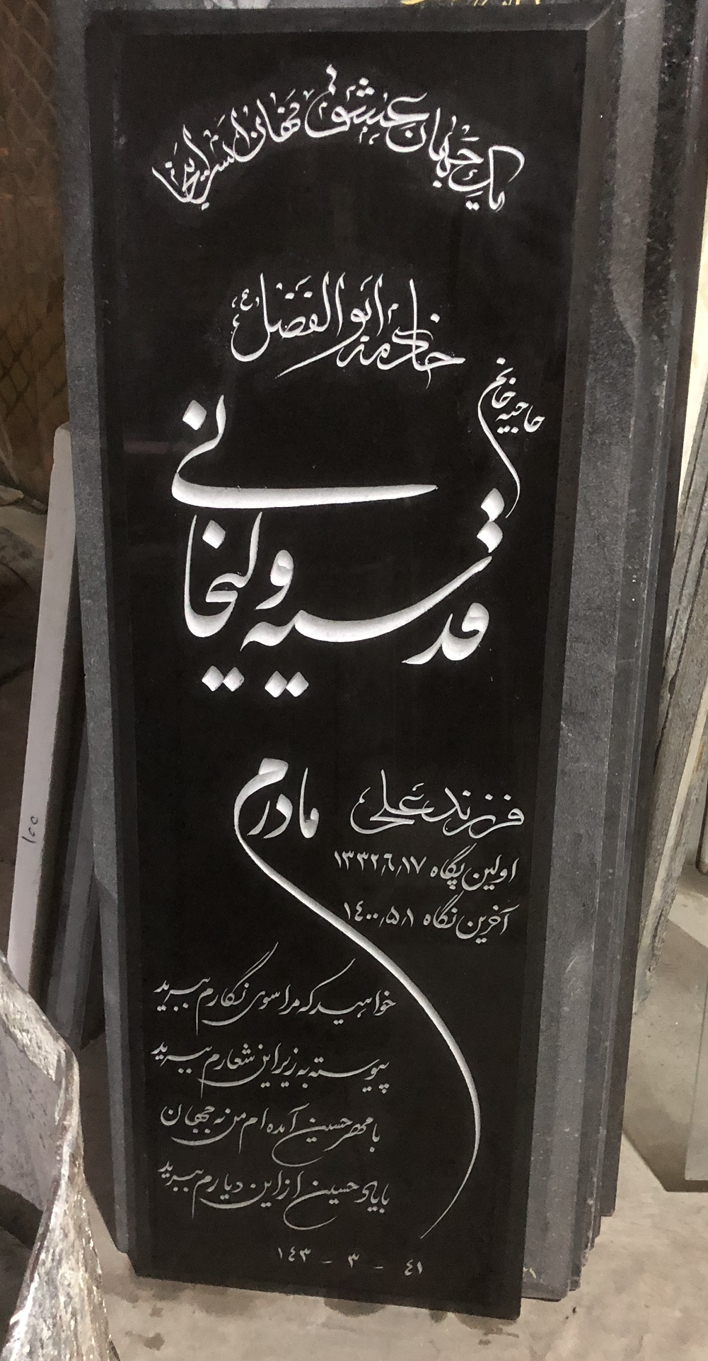 یک جهان عشق نهان است اینجا
خادمه ابوالفضل ع
حاجیه خانم
قدسیه ولیخانی
مادرم
فرزند علی
اولین پگاه ۱۳۳۲/۶/۱۷
آخرین نگاه ۱۴۰۰/۵/۸
خواهید که مرا سوی نگارم ببرید
پیوسته به زیر این شعارم ببرید
با مهر حسین آمده ام من نه جهان
با یاد حسین از این دیارم ببرید
۱۴۳ - ۳ - ۴۱
100